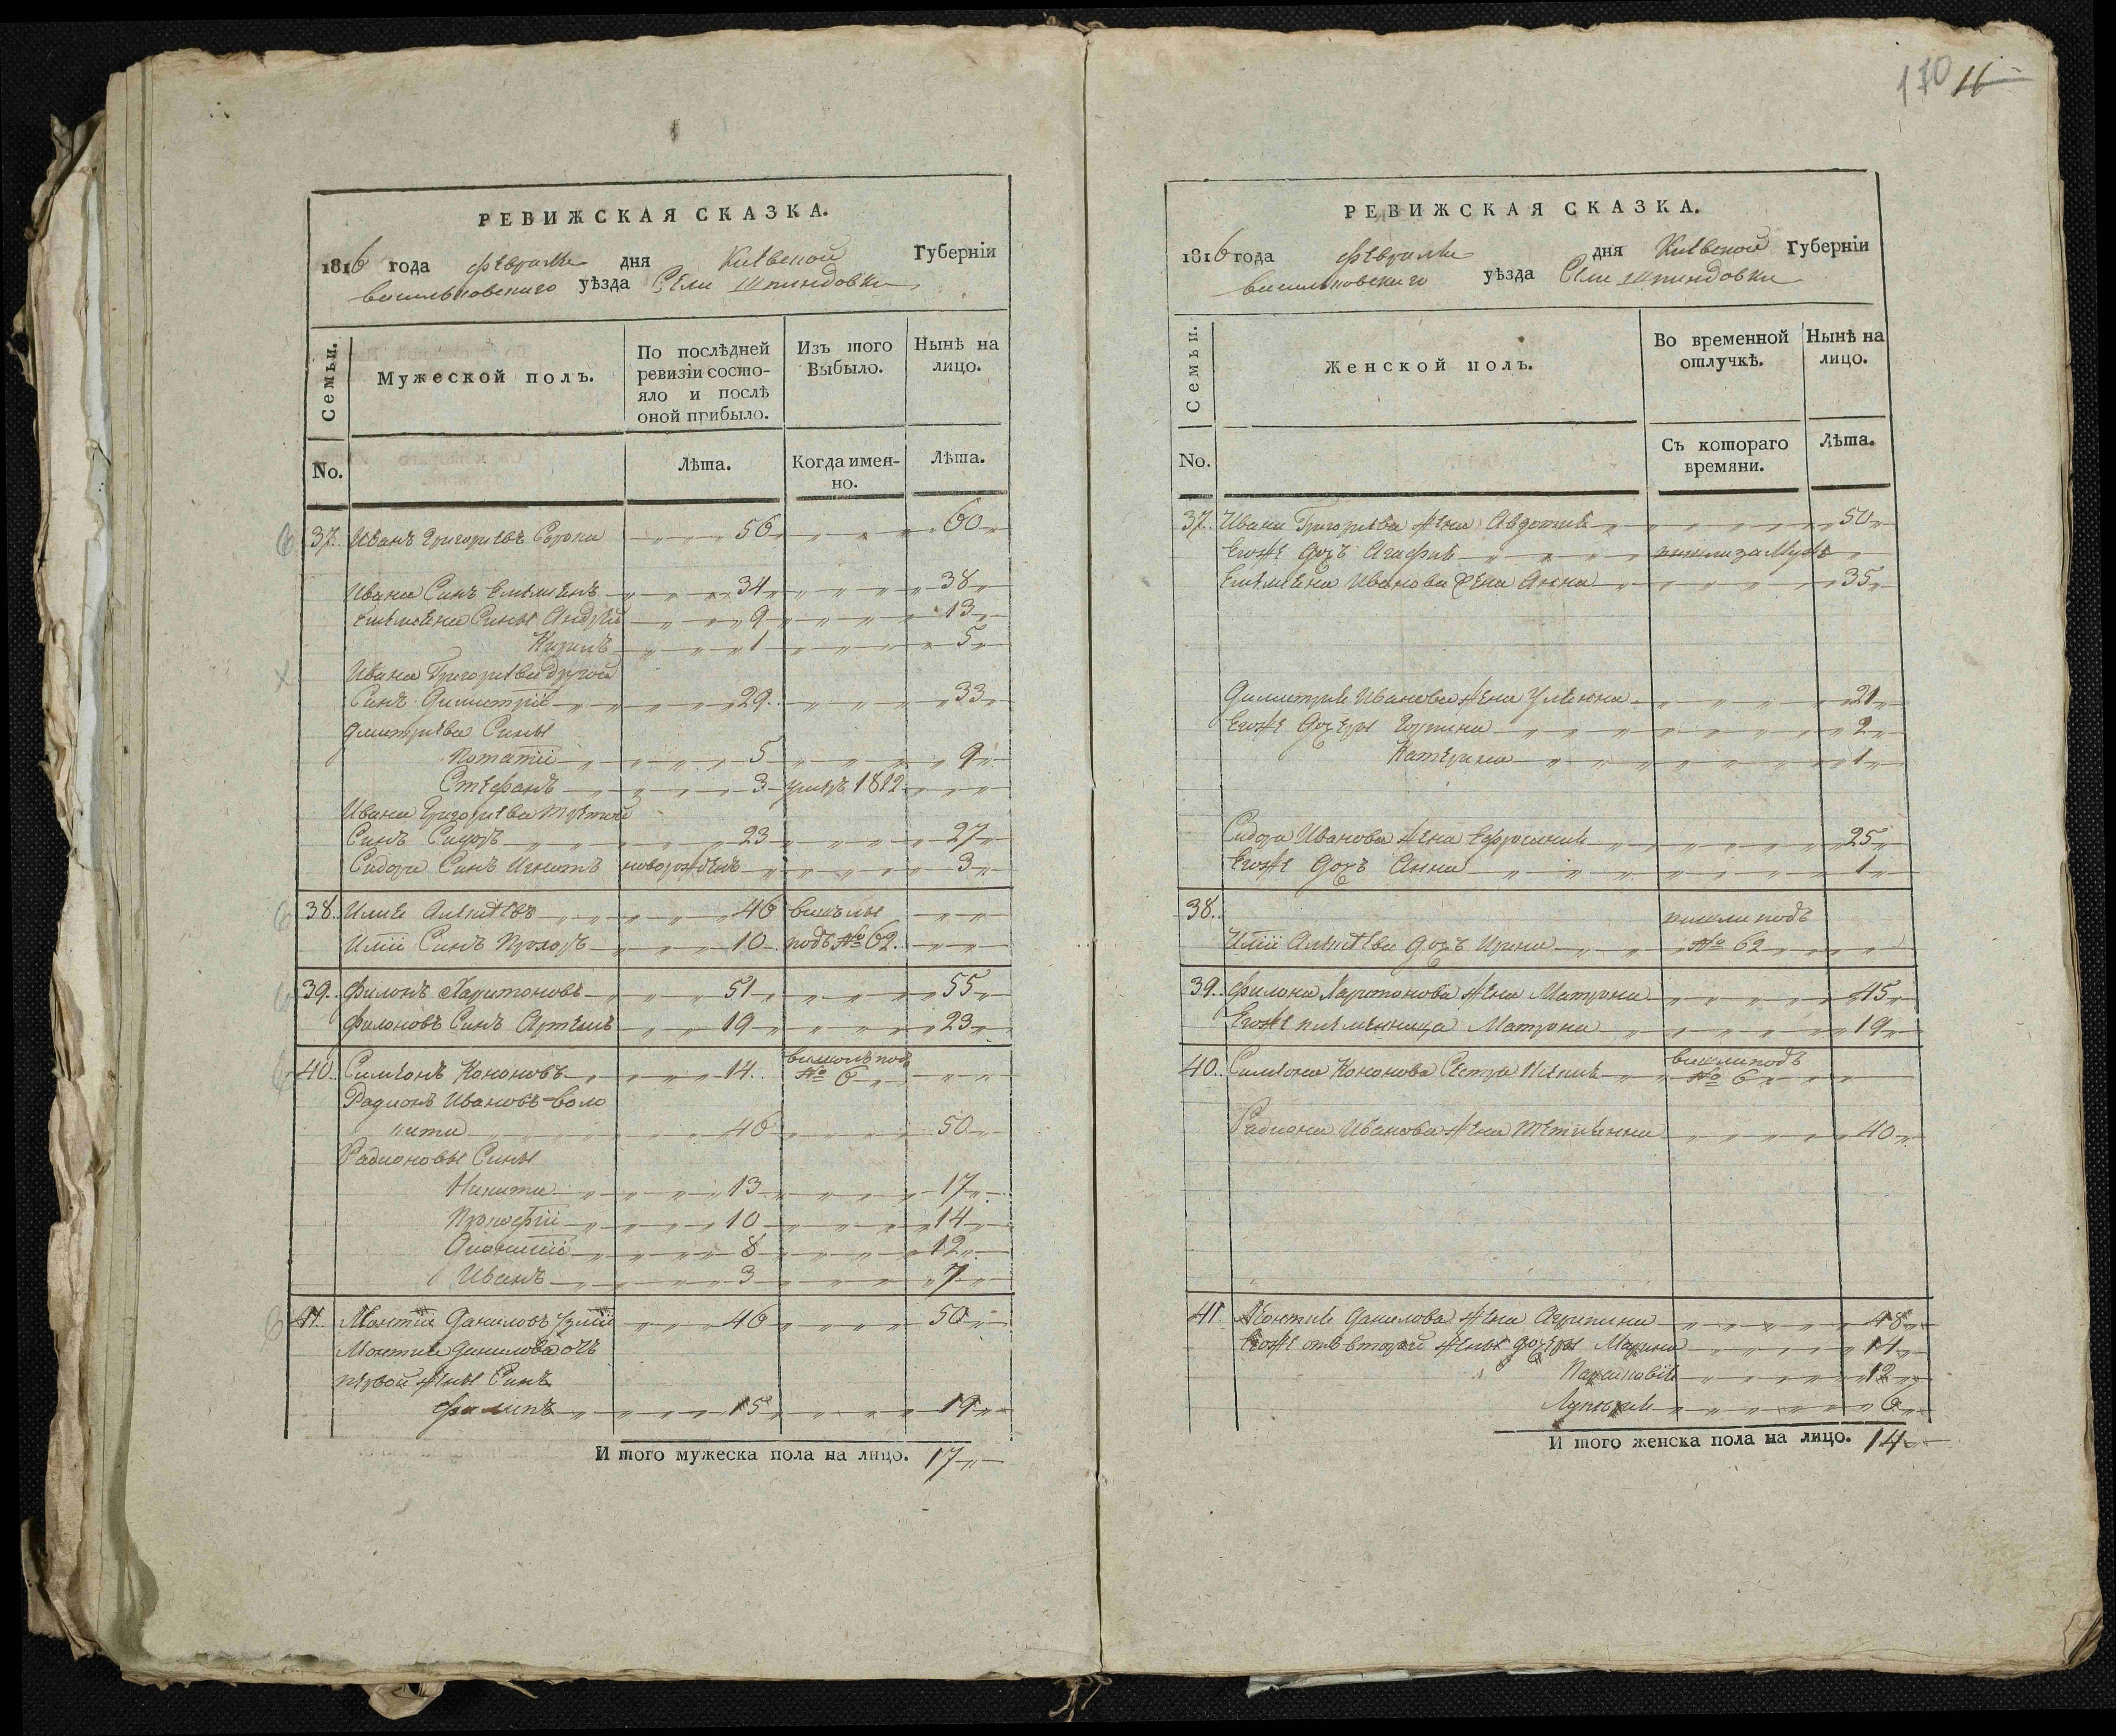 170 11
РЕВИЖСКАЯ СКАЗКА.
1816 года февраля дня Киевской Губерніи
васильковского уѣзда Села Шпиндовки
Семьи.
Мужеской полъ.
По послѣдней ревизіи состояло и послѣ оной прибыло.
Изъ того Выбыло.
Нынѣ на лицо.
No.
Лѣта.
Когда именно.
Лѣта.
37. Иванъ Григориевъ Сорока 56 60
Ивана Синъ Емелиенъ 34 38
Емелиена Сины Андрей 9 13
Кирилъ 1 5
Ивана Григориева другой
Синъ Димитрій 29 33
Дмитриева Сины
Потапій 5 9
Стефанъ 3 умеръ 1812
Ивана Григориева третий
Синъ Сидоръ 23 27
Сидора Синъ Игнатъ новорожденъ 3
38. Илия Алексеевъ 46 вишълы
Иліи Синъ Прохоръ 10 подъ № 62.
39. Филонъ Харитоновъ 51 55
Филоновъ Синъ Артемъ 19 23
40. Симеонъ Кононовъ 14 вишолъ подъ № 6
Радионъ Ивановъ Воло
кита 46 50
Радионовы Сины
Никита 13 17
Прокофій 10 14
Дионисій 8 12
Иванъ 3 7
41. Леонтій Даниловъ 46 50
Леонтия Данилова отъ
первой жены Синъ
Филипъ 15 19
И того мужеска пола на лицо. 17
РЕВИЖСКАЯ СКАЗКА.
1816 года февраля дня Киевской Губерніи
васильковского уѣзда Села Шпиндовки
Семьи.
Женской полъ.
Во временной отлучкѣ.
Нынѣ на лицо.
No.
Съ котораго времяни.
Лѣта.
37. Ивана Григориева жена Авдотия 50
Егоже дочъ Агафия вишла замужъ
Емелиена Иванова жена Анна 35
Димитрия Иванова жена Улияна 21
Егоже дочеры Горпина 2
Катерина 1
Сидора Иванова жена Ефросиния 25
Егоже дочъ Анна 1
38. вишли подъ
Иліи Алексеева дочъ Ирина № 62
39. Филона Харитонова жена Матрона 45
Егоже племенница Матрона 19
40. Симеона Кононова Сестра вишли подъ № 6
Радиона Иванова жена Тетиянна 40
41. Леонтия Данилова жена Агрипина 48
Егоже отъ второй жены дочеры Марина 14
Парасковія 12
Лукерия 6
И того женска пола на лицо. 14